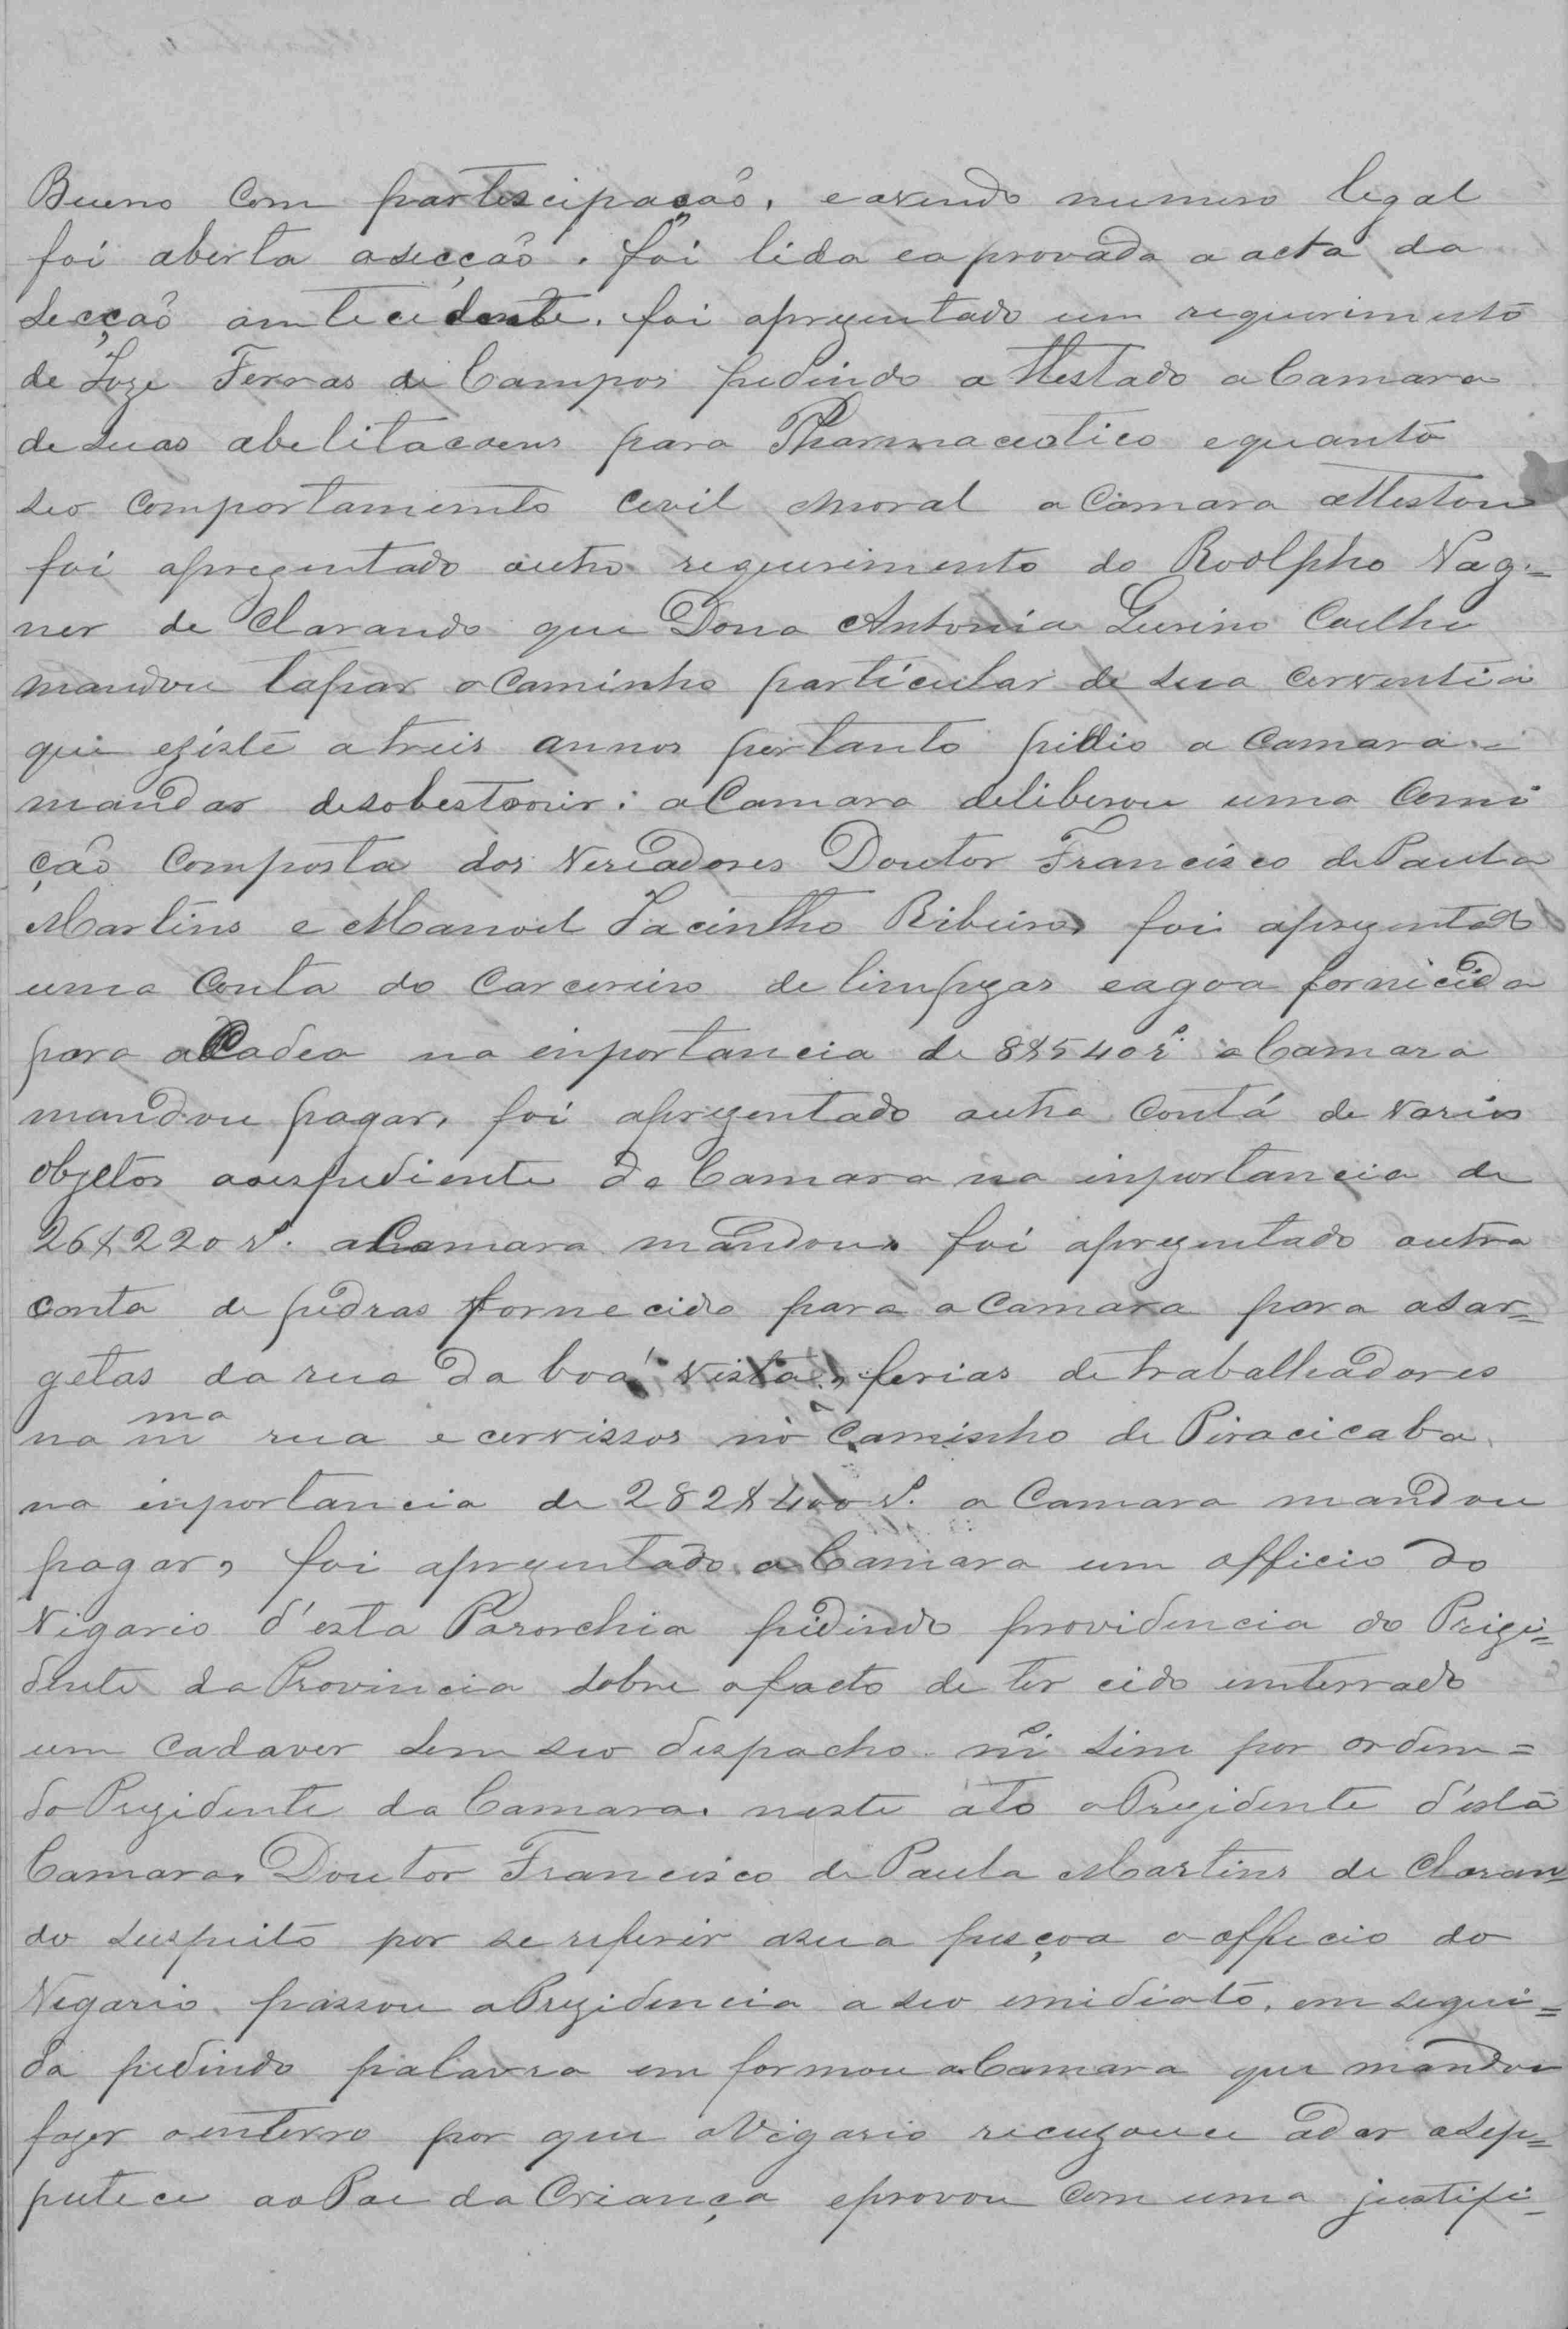 Bueno com partescipação, e avendo numero legal
foi aberta a secção. foi lida e aprovada a acta da
secção antecedente. foi aprezentado um requerimento
de Joze Ferras de Campos pedindo attestado a Camara
de suas abelitacoens para Pharmaceotico e quanto
seo comportamento cevil e moral a Camara attestou
foi aprezentado outro requerimento do Rodolpho Vag-
ner de clarando que Dona Antonia Coelho
mandou tapar o caminho particular de sua cerventia
que eziste a treis annos portanto pidio a Camara =
mandar desobestroir: a Camara deliberou uma Comi
ção composta dos Veriadores Doutor Francisco de Paula
Martins e Manoel Jacintho Ribeiro, foi aprezentado
uma conta do carcereiro de limpezas e agoa fornicida
para a Cadea na inportancia de 8$540 rs. a Camara
mandou pagar, foi aprezentado outra conta de varios
objetos ao espediente da Camara na inportancia de
26$220 rs. a Camara mandou. foi aprezentado outra
conta de pedras fornecido para a Camara para a sar=
getas da rua da boa vista, ferias de trabalhadores
na m ma rua e cervissos no caminho de Piracicaba
na inportancia de 282$400 rs. a Camara mandou
pagar, foi aprezentado a Camara um officio do
Vigario d'esta Parochia pidindo providencia do Prizi=
dente da Provincia sobre o facto de ter cido enterrado
um cadaver sem seo despacho sim por ordem =
do Prezidente da Camara. neste ato o Prezidente d'esta
Camara. Doutor Francisco de Paula Martins de claran=
do suspeito por se referir a sua pesçoa o officio do
Vegario. passou a Prezidencia a seo imidiato, em segui=
da pedindo palavra em formou a Camara que mandou
fazer o enterro por que o Vigario recuzou a dar a sep=
ao Pae da Criança e provou com uma justifi=